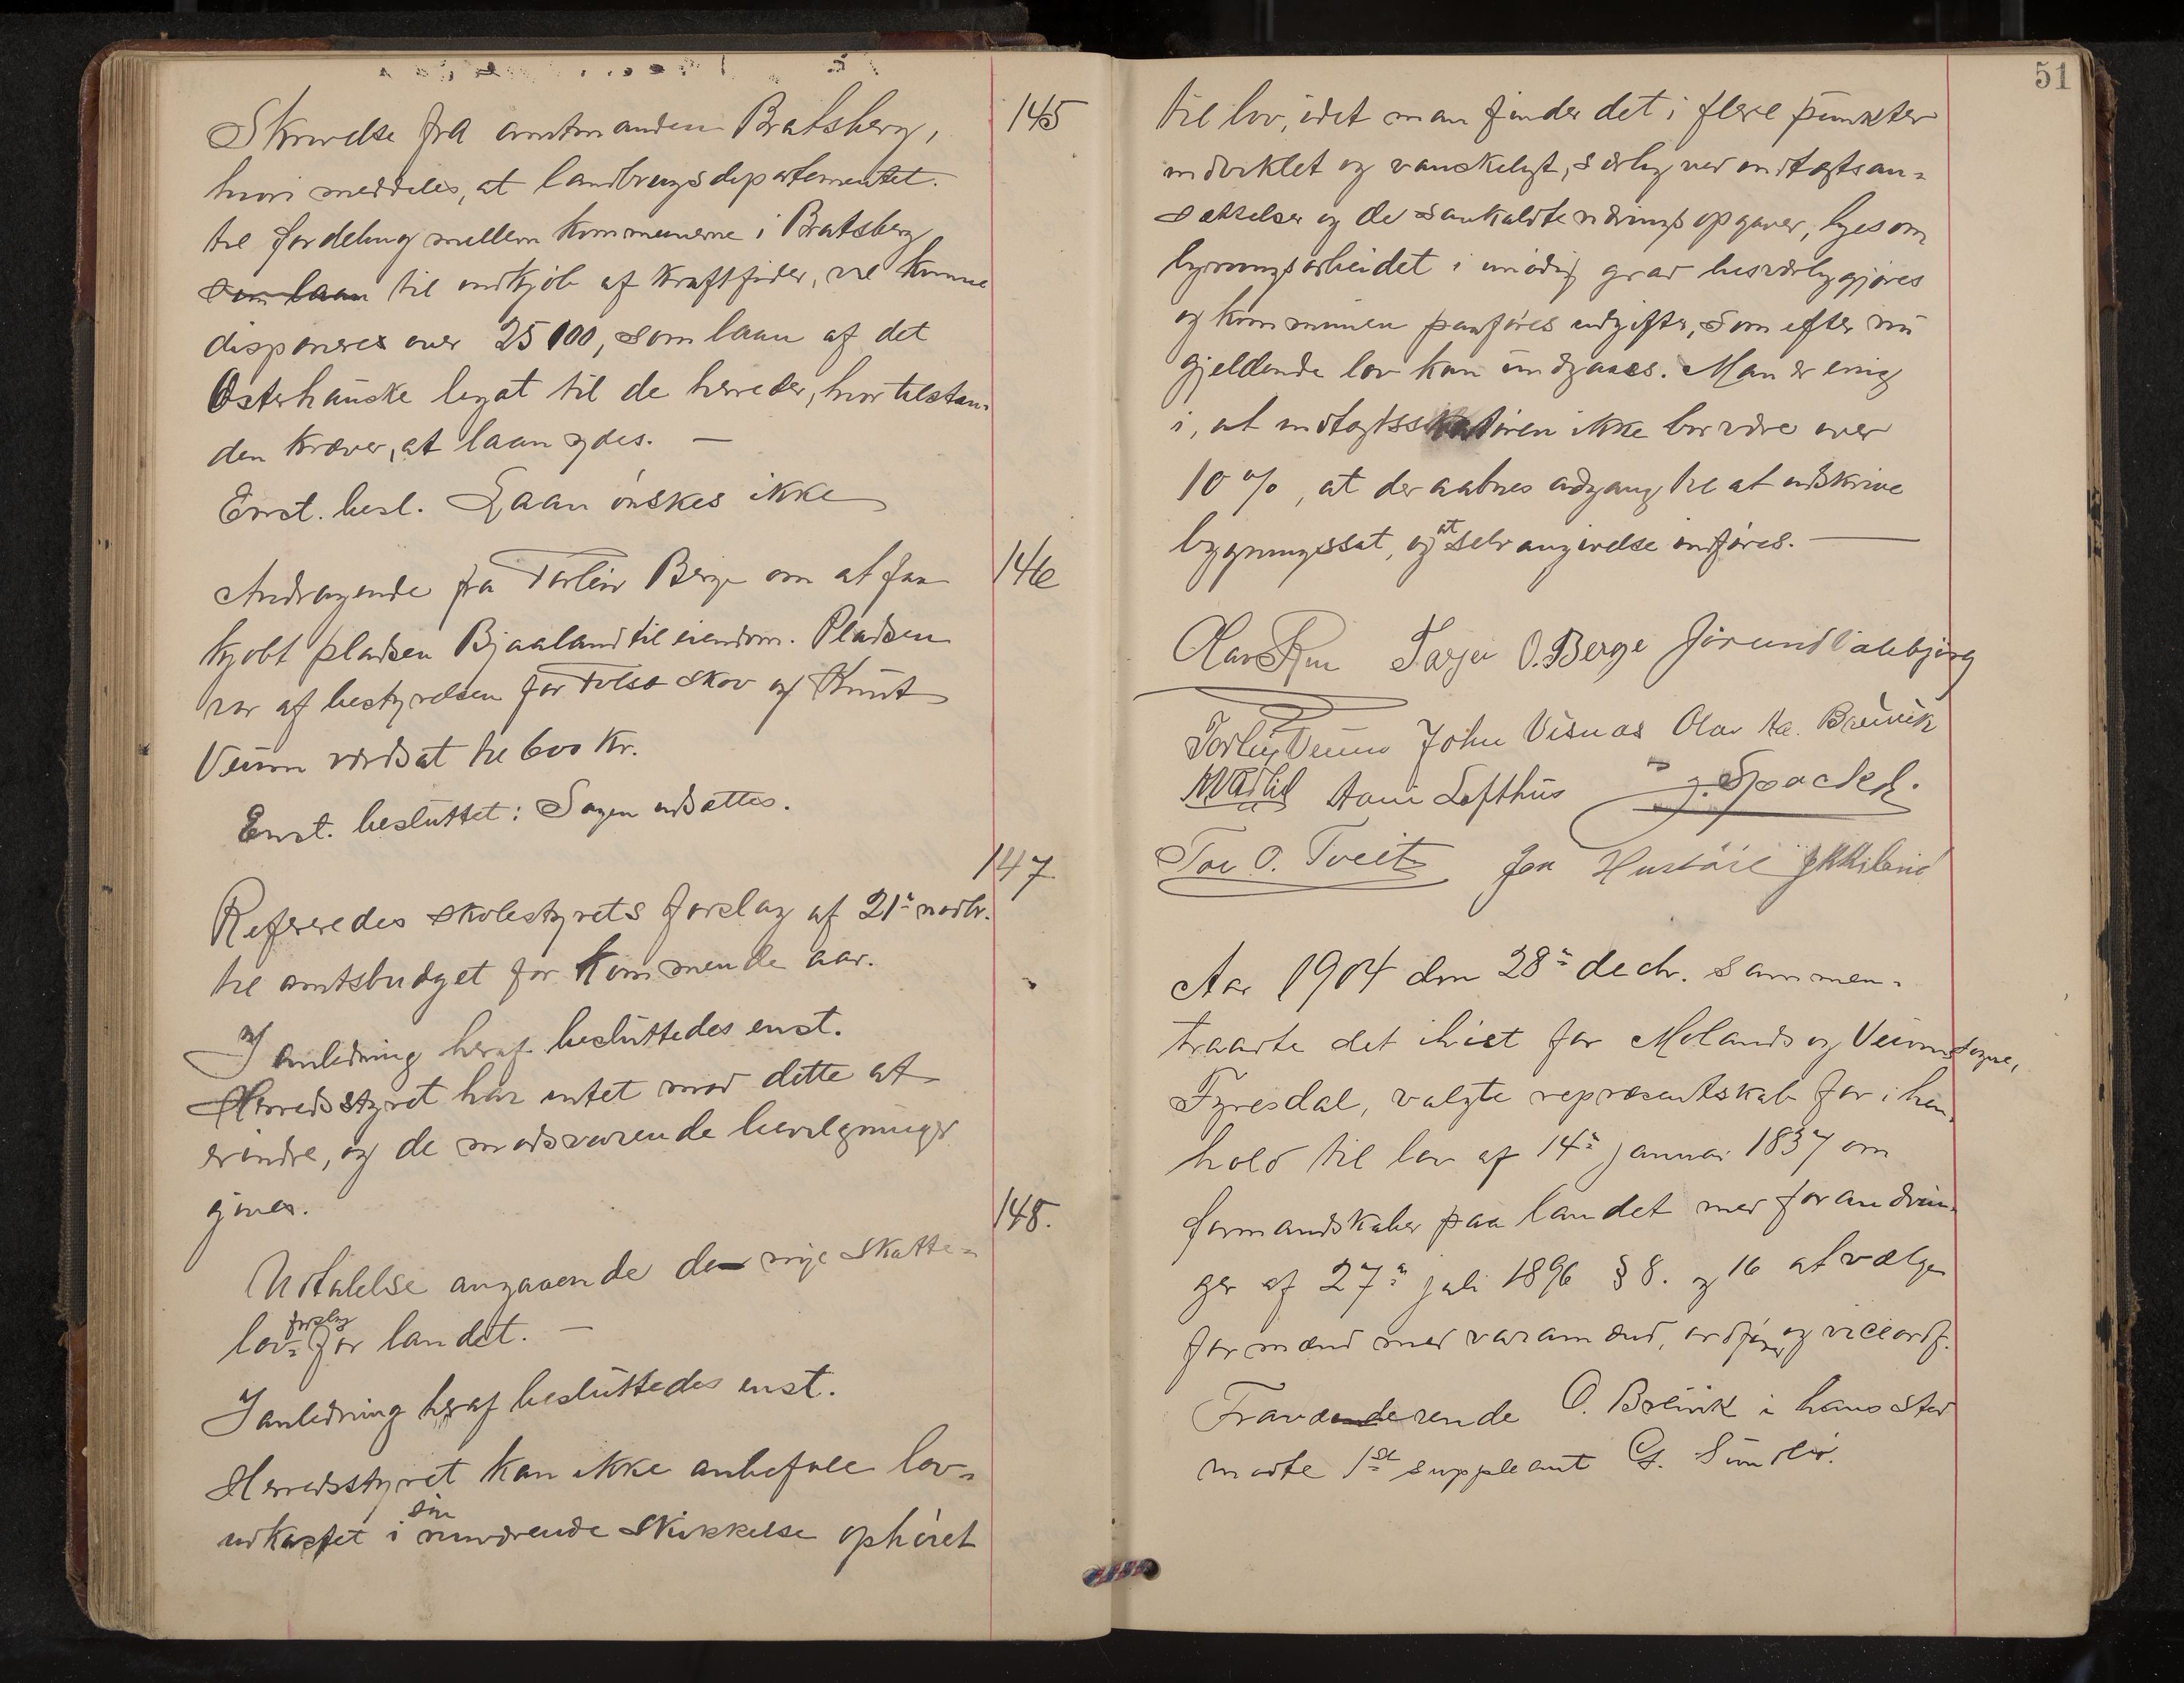 145
Skrivelse fra amtmanden Bratsberg,
hvori meddeles, at landbrugsdepartementet.
til fordeling mellem kommunerne i Bratsberg
som laan til indkjöb af kraftfoder, vil kunne
disponeres over 25100, som laan af det
Osterhauske legat til de herreder, hvor tilstan-
den kræver, at laan ydes. —
Enst. besl. Laan önskes ikke
146
Andragende fra Torleiv Berge om at faa
kjøbt pladsen Bjaaland til eiendom. Pladsen
var af bestyrelsen for skov og Knut
Veum værdsat til 600 kr.
Enst. besluttet: Sagen udsættes.
147
Refereredes skolestyrets forslag af 21de novbr.
til amtsbudget for kommende aar.
I anledning heraf besluttedes enst.
Herredsstyret har intet mod dette at
erindre, og de modsvarende bevilgninger
gives.
148.
Udtalelse angaaende de nye skatte-
lov- forslag for landet. —
I anledning heraf besluttedes enst.
Herredsstyret kan ikke anbefale lov-
udkastet i sin nuværende skikkelse ophöiet
51
til lov, idet man finder det i flere punkter
indviklet og vanskeligt, særlig ved indtægtsan-
sættelser og de saakaldte opgaver, ligesom
ligningsarbeidet i unødig grad besværliggjøres
og kommunen paaføres udgifter, som efter nu
gjeldende lov kan undgaaes. Man er enig
i, at indtægtsskatören ikke bør være over
10 %, at der aabnes adgang til at udskrive
bygningsskat, og at selvangivelse indføres. —
Olav Tarjei O. Berge Jørund
Torleiv Veum John Visnas Olav Aa. Breivik
Aani Lofthus
Tor O. Tveit Jon
Aar 1904 den 28de decbr. sammen-
traadte det ihiet for Molands og Veum sogne,
Fyresdal, valgte repræsentskab for i hen-
hold til lov af 14de januar 1837 om
formandskaber paa landet med forandrin-
ger af 27de juli 1896 § 8. og 16 at vælge
formænd med varamænd, ordfører og viceordf.
Fraværende O. Breivik i hans sted
mødte 1ste suppleant G.